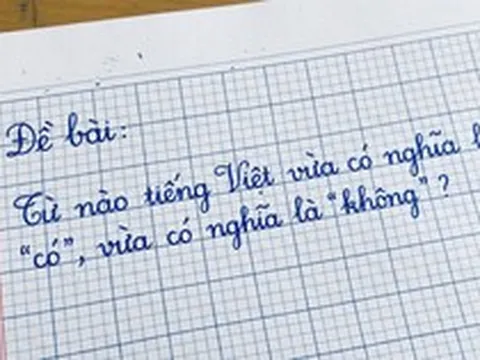 Đề bài:
Từ nào tiếng Việt vừa có nghĩa
"có", vừa có nghĩa là "không"?